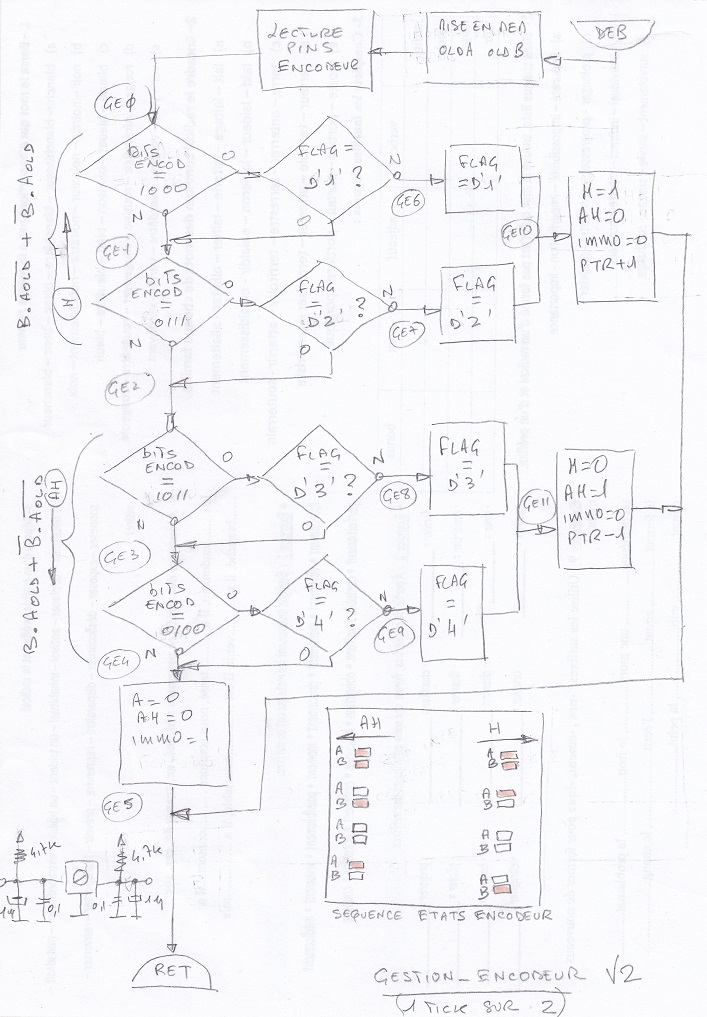 LECTURE
PINS
ENCODEUR
MISE EN MEM
OLDA OLDB
DEB
GEØ
bits
ENCOD
=
1000
O
N
FLAG =
D'1' ?
N
O
GE6
FLAG
=D'1'
GE10
H=1
AH=0
immo=0
PTR+1
GE1
bits
ENCOD
=
0111
O
N
FLAG
=
D'2' ?
N
O
GE7
FLAG
=
D'2'
H
B.AOLD + B.AOLD
GE2
bits
ENCOD
=
1011
O
N
FLAG
=
D'3' ?
N
O
GE8
FLAG
=
D'3'
GE11
H=0
AH=1
immo=0
PTR-1
GE3
bits
ENCOD
=
0100
O
N
FLAG
=
D'4' ?
N
O
GE9
FLAG
=
D'4'
AH
B.AOLD + B.AOLD
GE4
A=0
AH=0
immo=1
GE5
AH
H
A
B
A
B
A
B
A
B
A
B
A
B
A
B
A
B
SEQUENCE ETATS ENCODEUR
4,7K
4,7K
0,1
0,1
RET
GESTION_ENCODEUR V2
(1 TICK SUR 2)